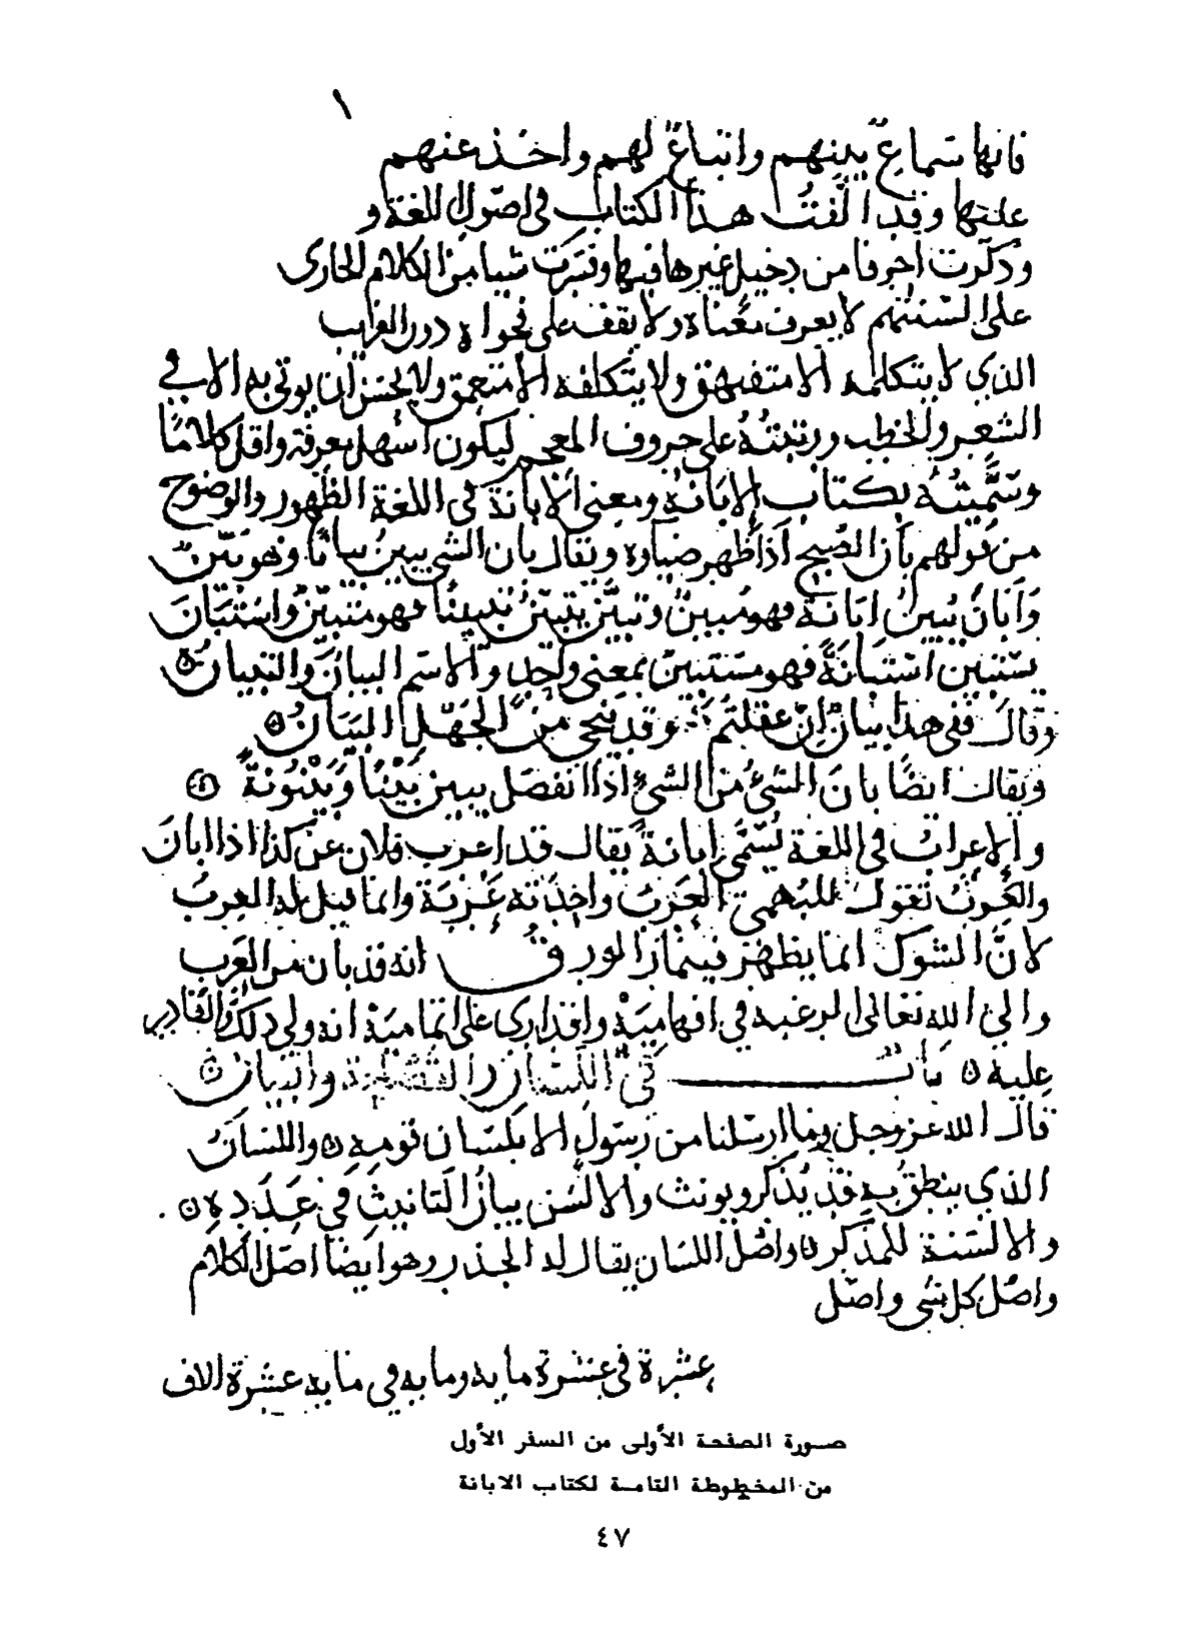 ١
فانها سماع بينهم واتباع لهم واخذ عنهم
عنها وقد الّفتُ هذا الكتاب في اصول اللغة و
وذكرت احرفا من دخيل غيرها فيها وفسّرت شيا من الكلام الجاري
على السنتهم لا يعرف معناه ولا يقف على فحواه دون الغريب
الذي لا يتكلمه الا متفيهق ولا يتكلفه الا متعمق ولا يحسن ان يوتي به الا في
الشعر والخطب ورتبتُهُ على حروف المعجم ليكون اسهل معرفة واقل كلامًا
وسَمَّيتُهُ بكتاب الابانة ومعنى الابانة في اللغة الظهور والوضوح
من قولهم بان الصبح اذا ظهر ضياوه ويقال بان الشي يبين بيانًا وهو بَيّن
وَابانَ يُبينُ ابانةً فهو مُبينٌ وتبيَّن يتبيّنُ تبيينًا فهو متبيّن واستبانَ
يستبين استبانَةً فهو مستبينٌ بمعنى واحد والاسم البيانُ والتبيان ۞
وقال ففي هذا بيانٌ اِن عقلتم وقد ينجي من الجهل البَيَانُ ۞
ويقال ايضًا بانَ الشئُ من الشئِ اذا انفصَل يبين بَيْنًا وَبَيْنُونةً ۞
والاعراب في اللغة يُسَمَّى ابانةً يقال قد اعرب فلان عن كذا اذا ابانَ
والعَربُ تقول للبُهمى العِربُ واحدَته عِرْبة وانما قيل له العِربُ
لانَّ الشوك انما يظهر فيتماز الورق انه قد بان من العَرب
والى الله تعالى الرغبه في افهامِيَهْ واقداري على اتماميَهْ انه ولي ذلك والقادر
عليه ۞ بابٌ في اللسان والفصاحة والبيان ۞
قال الله عز وجل وما ارسلنا من رسول الا بلسان قومه ۞ واللسانُ
الذي ينطق به قد يُذكر ويونث والالسُن بيان التانيثِ في عَدَدِهِ ۞
والالسنة للمذكر ۞ واصْل اللسان يقال له الجذر وهو ايضا اصل الكلام
واصْل كل شي واصْل
عشرة في عشرة مايه ومايه في مايه عشرة الاف
صورة الصفحة الأولى من السفر الأول
من المخطوطة التامة لكتاب الابانة
٤٧